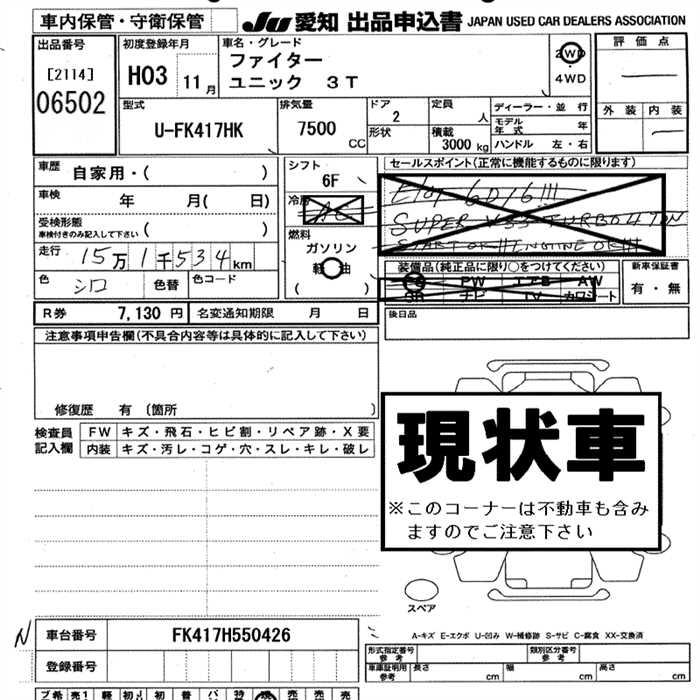 車内保管・守衛保管
JU 愛知 出品申込書 JAPAN USED CAR DEALERS ASSOCIATION
出品番号
[2114]
06502
初度登録年月
H03 11月
車名・グレード
ファイター
ユニック 3T
2WD
・
4WD
評価点
外装 内装
型式
U-FK417HK
排気量
7500 CC
ドア
2
形状
定員
人
積載
3000 kg
ディーラー・並行
モデル年式 年
ハンドル 左・右
車歴
自家用・( )
車検
年 月( 日)
受検形態
車検付きのみ記入して下さい ( )
走行
15万1千534 km
色
シロ
色替
色コード
シフト
6F
冷房
AC
燃料
ガソリン
軽油
( )
セールスポイント(正常に機能するものに限ります)
装備品(純正品に限り○をつけてください)
PS PW エアB AW
SR ナビ TV カワシート
新車保証書
有・無
R券 7,130 円
名変通知期限 月 日
後日品
注意事項申告欄(不具合内容等は具体的に記入して下さい)
修復歴 有 〔箇所 〕
検査員
記入欄
FW キズ・飛石・ヒビ割・リペア跡・X要
内装 キズ・汚レ・コゲ・穴・スレ・キレ・破レ
現状車
※このコーナーは不動車も含み
ますのでご注意下さい
スペア
A-キズ E-エクボ U-凹み W-補修跡 S-サビ C-腐食 XX-交換済
N
車台番号 FK417H550426
登録番号
形式指定番号
参考
類別区分番号
参考
車庫証明用
参考
長さ cm 幅 cm 高さ cm